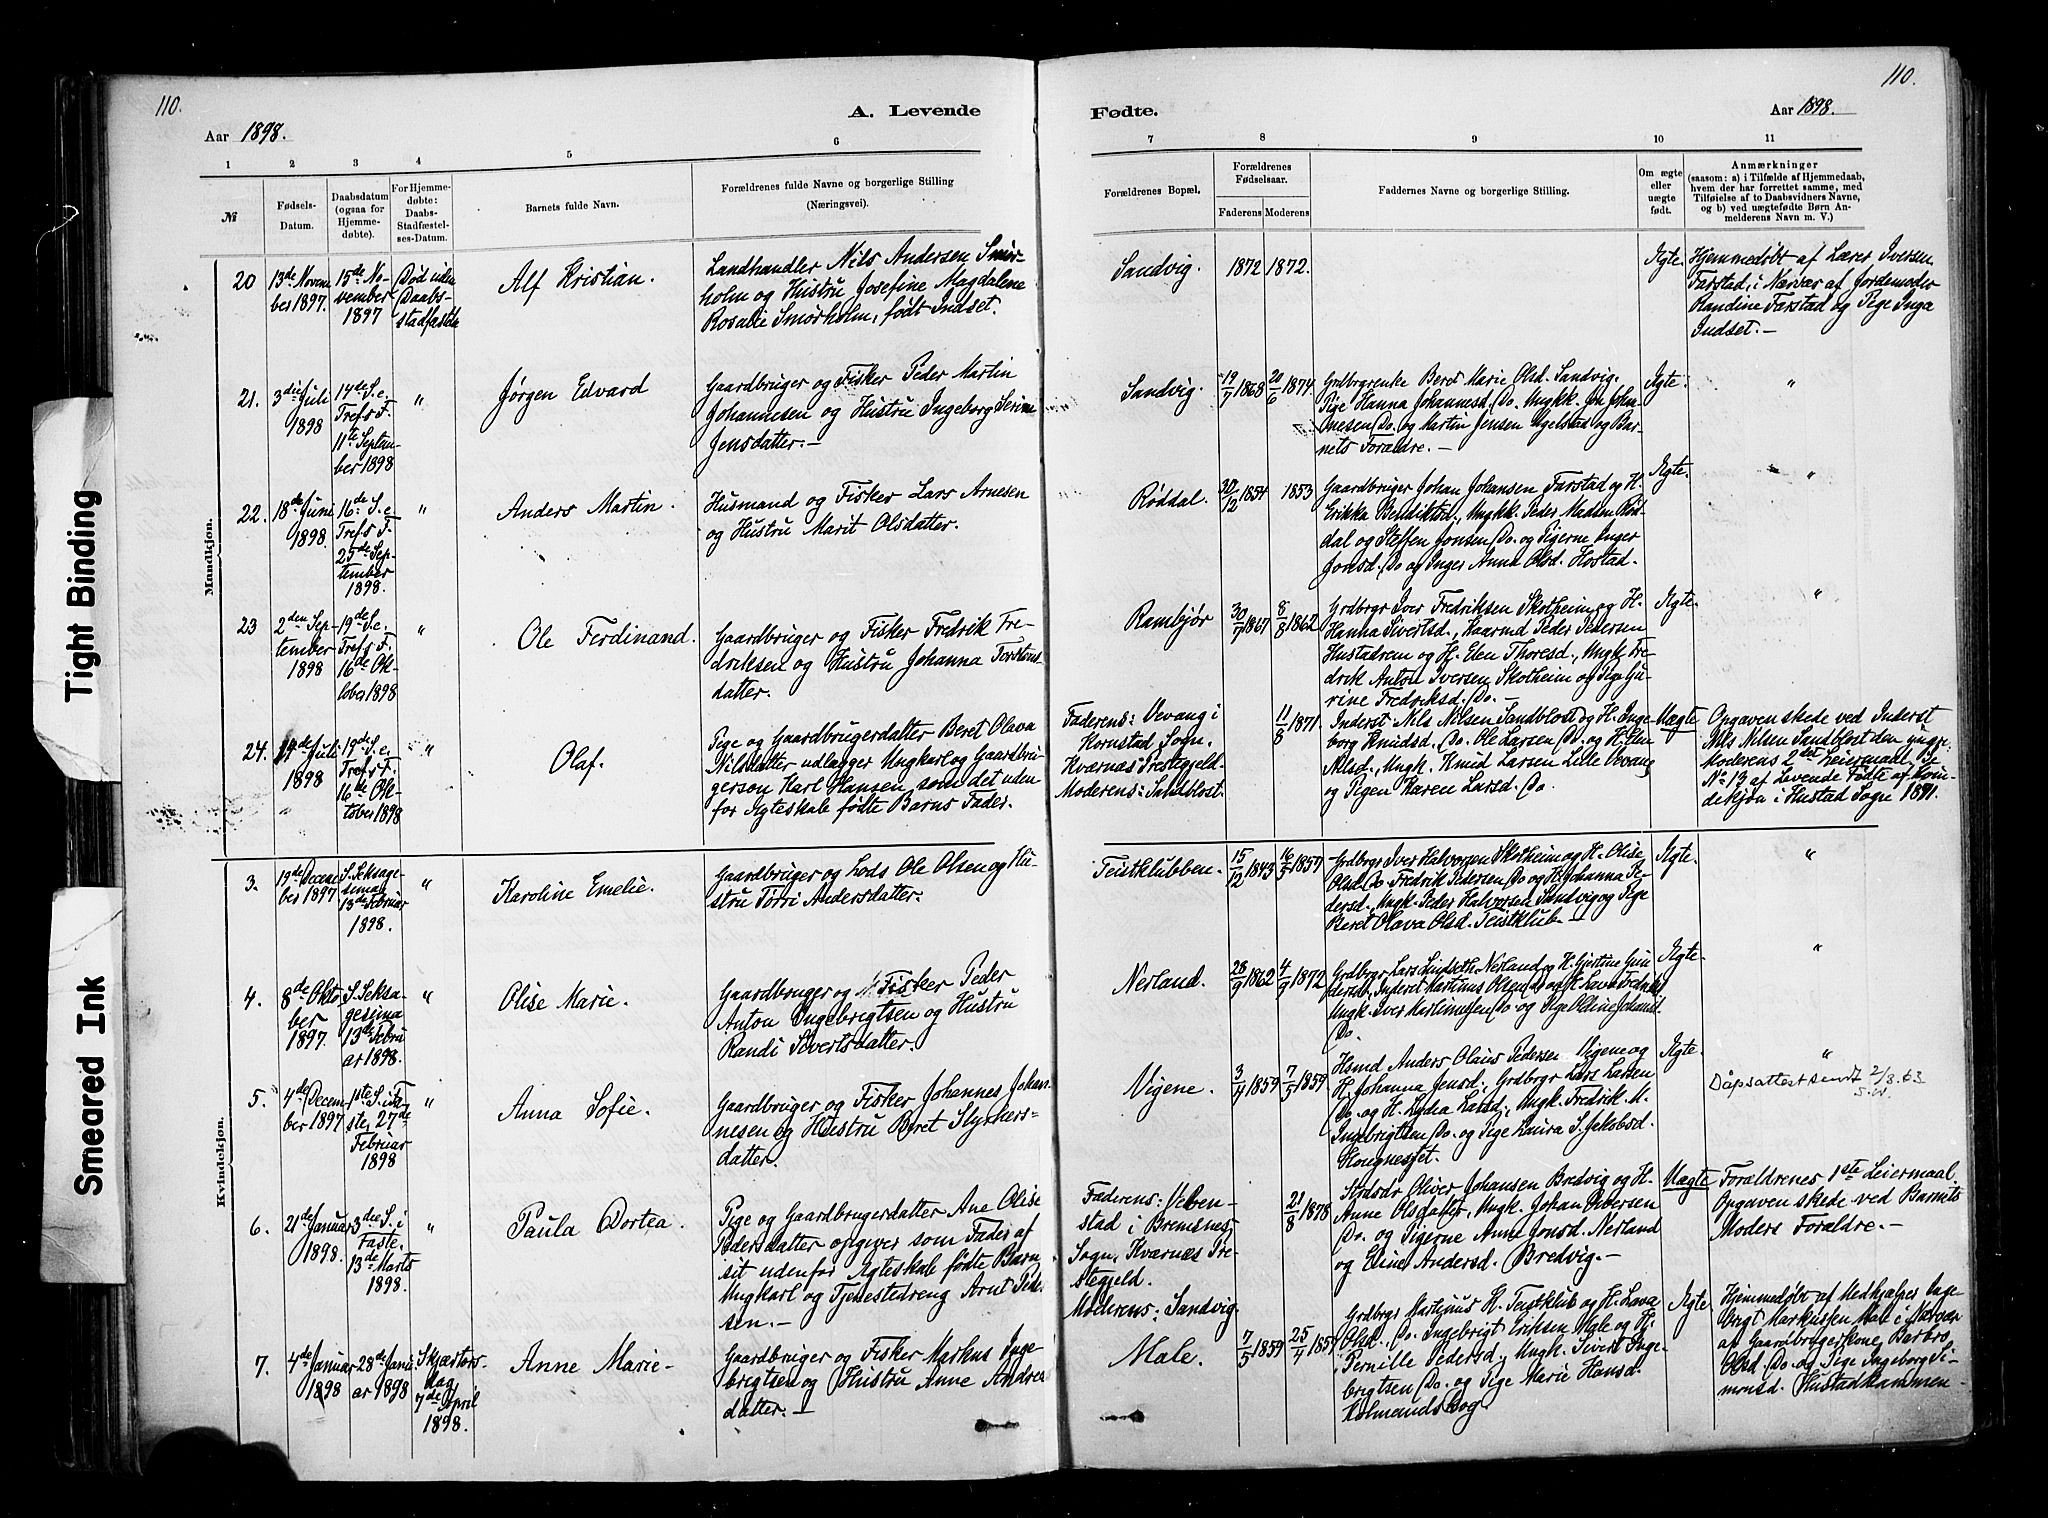 110.
110.
A. Levende
Fødte.
Aar 1898.
Aar 1898.
1
2
3
4
5
6
7
8
9
10
11
№
Fødsels-
Datum.
Daabsdatum
(ogsaa for
Hjemme-
døbte).
For Hjemme-
døbte:
Daabs-
Stadfæstel-
ses-Datum.
Barnets fulde Navn.
Forældrenes fulde Navne og borgerlige Stilling
(Næringsvei).
Forældrenes Bopæl.
Forældrenes
Fødselsaar.
Faderens
Moderens
Faddernes Navne og borgerlige Stilling.
Om ægte
eller
uægte
født.
Anmærkninger
(saasom: a) i Tilfælde af Hjemmedaab,
hvem der har forrettet samme, med
Tilføielse af to Daabsvidners Navne,
og b) ved uægtefødte Børn An-
melderens Navn m. V.)
Mandkjøn.
20
13de Novem
ber 1897.
15de No-
vember
1897
Død uden
Daabs-
stadfæstelse
Alf Kristian.
Landhandler Nils Andersen Smør-
holm og Hustru Josefine Magdalene
Rosalie Smørholm, født Indset.
Sandvig.
1872
1872.
Ægte.
Hjemmedøbt af Lærer Iversen
Farstad, i Nærvær af Jordemoder
Randine Farstad og Pige Inga
Indset.-
21.
3die Juli
1898
14de S. e.
Tref's F.
11te Septem-
ber 1898
"
Jørgen Edvard
Gaardbruger og Fisker Peder Martin
Johannesen og Hustru Ingeborg Serine
Jensdatter.-
Sandvig.
19/7 1868
20/6 1874
Grdbrgrenke Beret Marie Olsd. Sandvig,
Pige Hanna Johannesd. Do. Ungk. Jon Johan-
nesen Do. og Martin Jensen Ugelstad og Bar-
nets Forældre.-
Ægte.
"
22.
18de Juni
1898.
16de S. e.
Tref's F.
25de Sep-
tember
1898.
"
Anders Martin.
Husmand og Fisker Lars Arnesen
og Hustru Marit Olsdatter.
Røddal.
30/12 1854
1853
Gaardbruger Johan Johansen Farstad og H.
Erikka Bendiktsd., Ungk. Peder Madsen Rød-
dal og Steffen Jonsen Do. og Pigerne Inger
Jonsd. Do og Inger Anna Olsd. Hostad.
Ægte.
"
23
2den Sep-
tember
1898
19de S. e.
Tref's F.
16de Ok-
tober 1898
"
Ole Ferdinand.
Gaardbruger og Fisker Fredrik Fre-
driksen og Hustru Johanna Torstens-
datter.
Rambjør
30/7 1867
8/8 1862
Grdbrgr Iver Fredriksen Skotheim og H.
Hanna Sivertsd., Kaarmd Peder Pedersen
Hustadrem og H. Elen Thoresd., Ungk. Fre-
drik Anton Iversen Skotheim og Pige Gu-
rine Fredriksd. Do.-
Ægte.
"
24.
14de Juli
1898
19de S. e.
Tref's F.
16de Ok-
tober 1898
"
Olaf.
Pige og Gaardbrugerdatter Beret Olava
Nilsdatter udlægger Ungkarl og Gaardbru-
gerson Karl Hansen, som det uden
for Ægteskab fødte Barns Fader.
Faderens: Vevang i
Kornstad Sogn.
Kværnæs Prestegjeld.
Moderens: Sandblost.
11/8 1871.
Inderst Nils Nilsen Sandblost og H. Inge-
borg Knudsd. Do. Ole Larsen Do. og H. Elen
Nilsd., Ungk. Knud Larsen Lille Vevang
og Pigen Karen Larsd. Do.
Uægte
Opgaven skede ved Inderst
Nils Nilsen Sandblost den yngre.
Moderens 2det Leiermaal, se
No 13 af Levende Fødte af Kvin-
dekjøn i Hustad Sogn 1891.
Kvindekjøn.
3.
19de Decem
ber 1897
S. Seksage-
sima
13de Februar
1898.
"
Karoline Emelie.
Gaardbruger og Lods Ole Olsen og Hu-
stru Torri Andersdatter.
Teistklubben.
15/12 1843
16/5 1857
Grdbrgr Iver Halvorsen Skotheim og H. Olise
Olsd. Do. Fredrik Pedersen Do og H. Johanna Pe-
dersd., Ungk. Peder Halvorsen Sandvig og Pige
Beret Olava Olsd. Teistklub.-
Ægte.
"
4.
8de Okto
ber
1897.
S. Seksa-
gesima
13de Febru
ar 1898.
"
Olise Marie.
Gaardbruger og Fisker Peder
Anton Ingebrigtsen og Hustru
Randi Sivertsdatter.
Nerland.
28/9 1862
4/9 1872
Grdbrgr Lars Lindseth Nerland og H. Gjertine Gun
dersd., Inderst Martinus Olsen Do og H. Lava
Ungk. Iver Martinussen Do og Pige Oline Johansd.
Do.
Ægte.
"
5.
4de Decem
ber 1897
1ste S. i Fa-
ste, 27de
Februar
1898
"
Anna Sofie.
Gaardbruger og Fisker Johannes Johan-
nesen og Hustru Beret Styrkers-
datter.
Vigene.
3/4 1859
7/5 1859
Hsmd. Anders Olaus Pedersen Vigene og
H. Johanna Jensd., Grdbrgr Lars Larsen
Do. og H. Lydia Larsd., Ungk. Fredrik M.
Ingebrigtsen Do. og Pige Laura S. Jakobsd.
Ægte.
"
Dåpsattest sendt 2/8. 63
6.
21de Januar
1898.
3die S. i
Faste.
13de Marts
1898.
"
Paula Dortea.
Pige og Gaardbrugerdatter Ane Olise
Pedersdatter opgiver som Fader af
sit udenfor Ægteskab fødte Barn
Ungkarl og Tjenestedreng Arnt Peder-
sen.-
Faderens: Veben-
stad i Bremsnes
Sogn, Kværnæs Pre-
stegjeld.
Moderens: Sandvig.
21/8 1878
Oliver Johansen Bredvig og H.
Anne Olsdatter, Ungk. Johan Oliversen
Do. og Pigerne Anne Jonsd. Nerland
og Eline Andersd. Bredvig.-
Uægte
Forældrenes 1ste Leiermaal.
Opgaven skede ved Barnets
Moders Forældre.-
7.
4de Januar
1898
28de Janu
ar 1898
Skjærtors-
dag
7de April
1898.
Anne Marie-
Gaardbruger og Fisker Markus Inge-
brigtsen og Hustru Anne Andreas
datter.-
Male.
7/5 1859
25/4 1857
Grdbrgr Martinus K. Teistklub og H. Lava
Olsd. Do. Ingebrigt Eriksen Male og H.
Pernille Pedersd., Ungk. Sivert Inge-
brigtsen Do. og Pige Marie Hansd.
Kolmandsbog
Ægte
Hjemmedøbt af Medhjælper Inge-
brigt Markussen Male i Nærvær
af Gaardbrugerkone Barbro
Olsd. Do. og Pige Ingeborg Si-
monsd. Hustadkammen-
Tight Binding
Smeared Ink